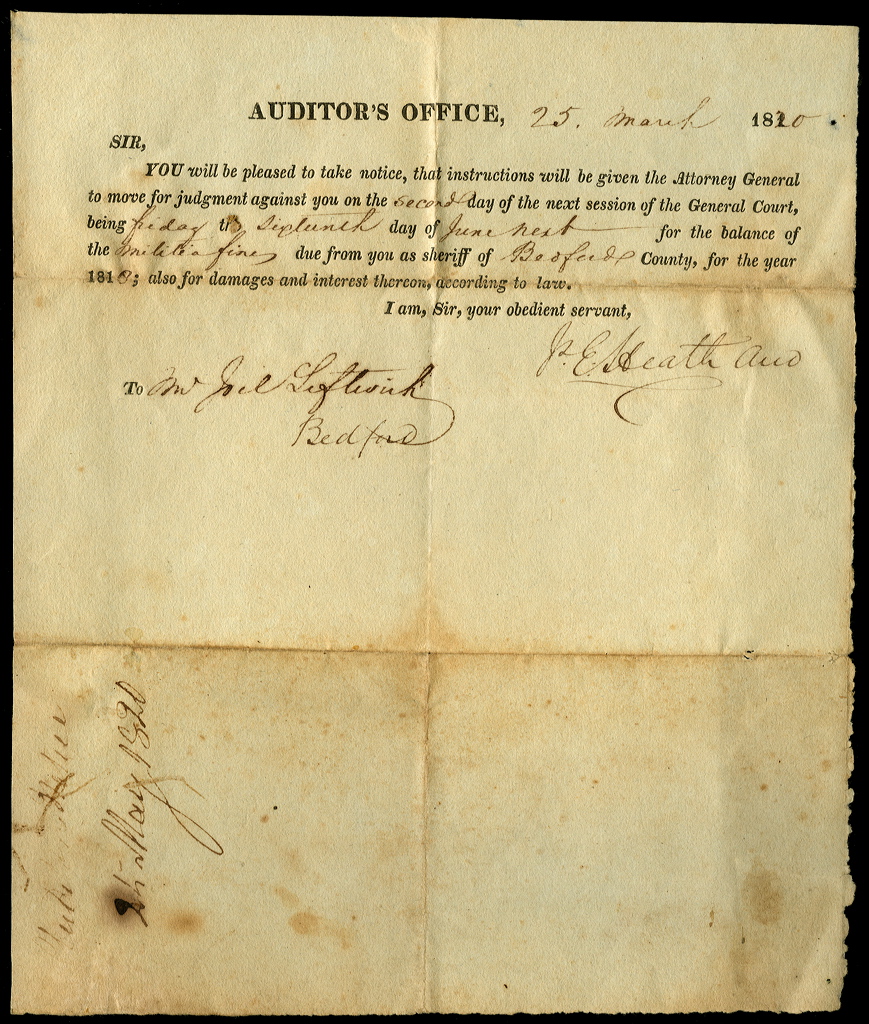 AUDITOR'S OFFICE, 25. March 1820
SIR,
YOU will be pleased to take notice, that instructions will be given the Attorney General
to move for judgment against you on the second day of the next session of the General Court,
being friday the sixteenth day of June next for the balance of
the militia fines due from you as sheriff of Bedford County, for the year
1818; also for damages and interest thereon, according to law.
I am, Sir, your obedient servant,
Js. E Heath Aud
To Mr Joel Leftwich
Bedford
25 May 1820